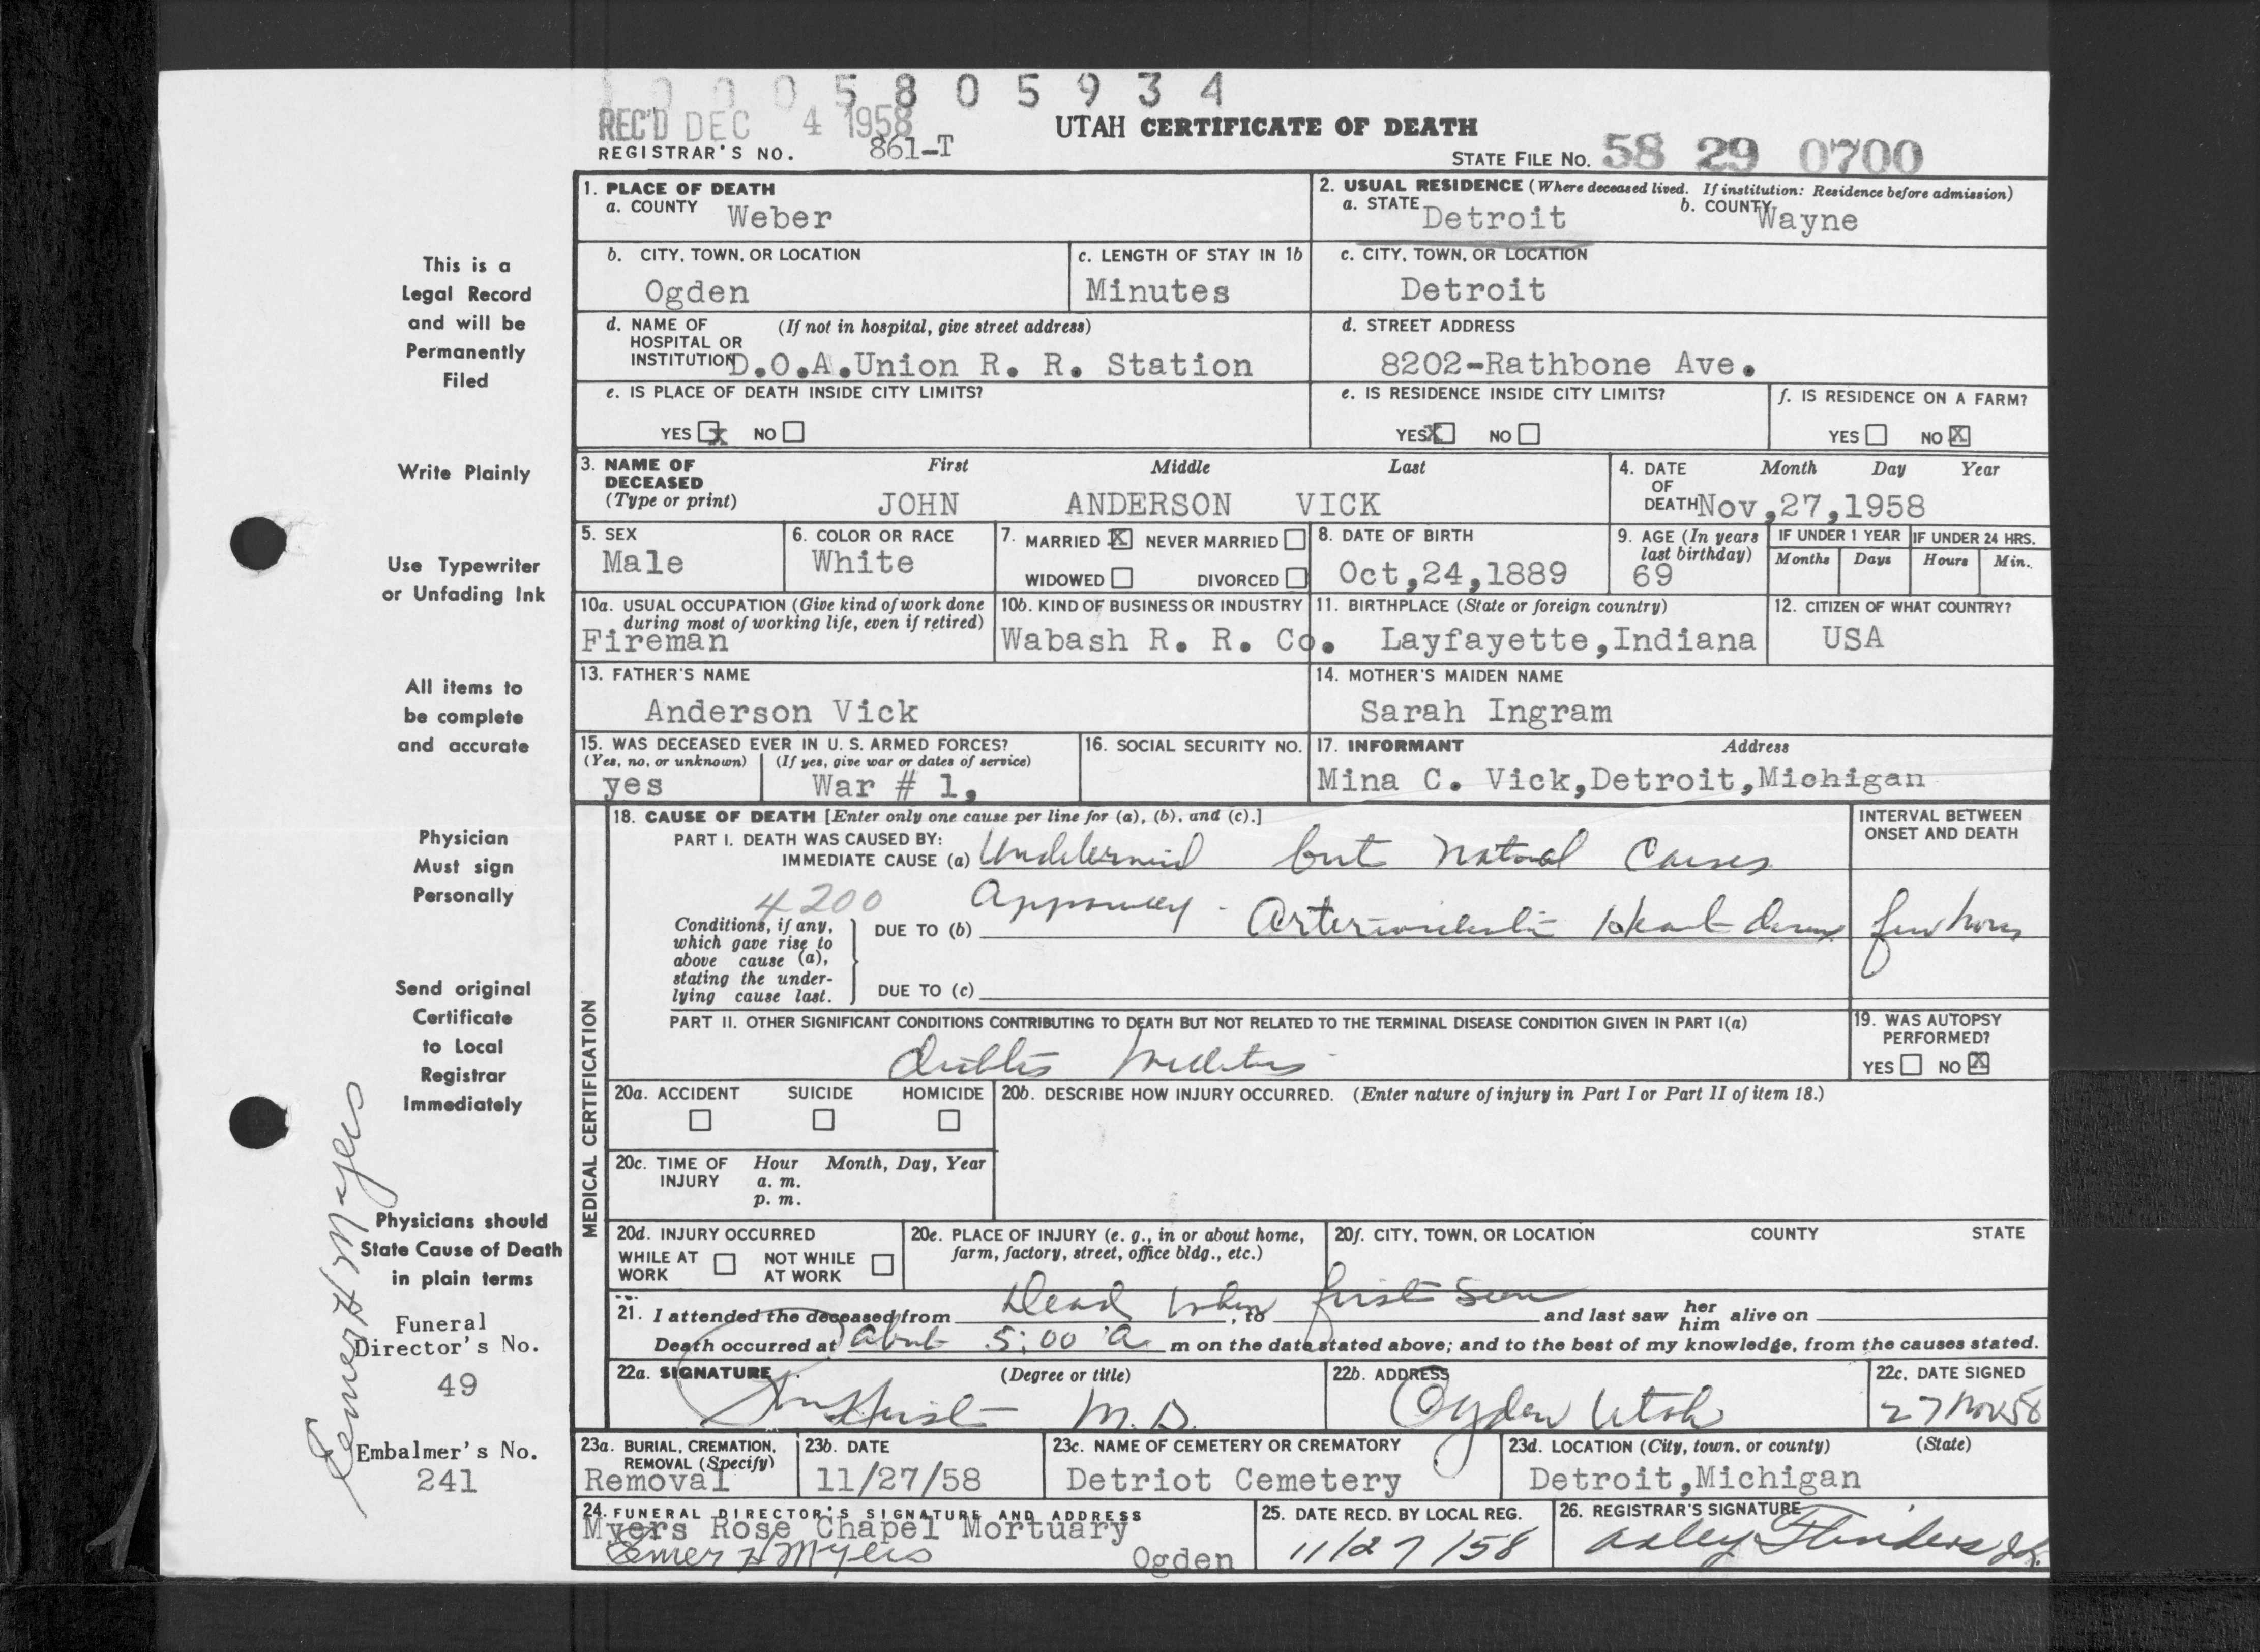 1 0 0 0 5 8 0 5 9 3 4
REC'D DEC 4 1958
UTAH CERTIFICATE OF DEATH
REGISTRAR'S NO. 861-T
STATE FILE NO. 58 29 0700
1. PLACE OF DEATH
a. COUNTY Weber
2. USUAL RESIDENCE (Where deceased lived. If institution: Residence before admission)
a. STATE Detroit b. COUNTY Wayne
b. CITY, TOWN, OR LOCATION
Ogden
c. LENGTH OF STAY IN 1b
Minutes
c. CITY, TOWN, OR LOCATION
Detroit
d. NAME OF (If not in hospital, give street address)
HOSPITAL OR
INSTITUTION D.O.A.Union R. R. Station
d. STREET ADDRESS
8202-Rathbone Ave.
e. IS PLACE OF DEATH INSIDE CITY LIMITS?
YES X NO
e. IS RESIDENCE INSIDE CITY LIMITS?
YES X NO
f. IS RESIDENCE ON A FARM?
YES NO X
3. NAME OF DECEASED (Type or print)
First Middle Last
JOHN ANDERSON VICK
4. DATE OF DEATH Month Day Year
Nov,27,1958
5. SEX
Male
6. COLOR OR RACE
White
7. MARRIED X NEVER MARRIED
WIDOWED DIVORCED
8. DATE OF BIRTH
Oct,24,1889
9. AGE (In years last birthday)
69
IF UNDER 1 YEAR IF UNDER 24 HRS.
Months Days Hours Min.
10a. USUAL OCCUPATION (Give kind of work done
during most of working life, even if retired)
Fireman
10b. KIND OF BUSINESS OR INDUSTRY
Wabash R. R. Co.
11. BIRTHPLACE (State or foreign country)
Layfayette,Indiana
12. CITIZEN OF WHAT COUNTRY?
USA
13. FATHER'S NAME
Anderson Vick
14. MOTHER'S MAIDEN NAME
Sarah Ingram
15. WAS DECEASED EVER IN U. S. ARMED FORCES?
(Yes, no, or unknown) (If yes, give war or dates of service)
yes War # 1,
16. SOCIAL SECURITY NO.
17. INFORMANT Address
Mina C. Vick,Detroit,Michigan
MEDICAL CERTIFICATION
18. CAUSE OF DEATH [Enter only one cause per line for (a), (b), and (c).]
PART I. DEATH WAS CAUSED BY:
IMMEDIATE CAUSE (a) Undetermined but natural causes
INTERVAL BETWEEN
ONSET AND DEATH
4200
Conditions, if any,
which gave rise to
above cause (a),
stating the under-
lying cause last.
DUE TO (b) Arteriosclerotic Heart disease few hours
DUE TO (c)
PART II. OTHER SIGNIFICANT CONDITIONS CONTRIBUTING TO DEATH BUT NOT RELATED TO THE TERMINAL DISEASE CONDITION GIVEN IN PART I(a)
diabetes mellitus
19. WAS AUTOPSY
PERFORMED?
YES NO X
20a. ACCIDENT SUICIDE HOMICIDE
20b. DESCRIBE HOW INJURY OCCURRED. (Enter nature of injury in Part I or Part II of item 18.)
20c. TIME OF INJURY Hour Month, Day, Year
a. m.
p. m.
20d. INJURY OCCURRED
WHILE AT WORK NOT WHILE AT WORK
20e. PLACE OF INJURY (e. g., in or about home,
farm, factory, street, office bldg., etc.)
20f. CITY, TOWN, OR LOCATION COUNTY STATE
Dead when first seen
21. I attended the deceased from , to and last saw her him alive on
Death occurred at about 5:00 a m on the date stated above; and to the best of my knowledge, from the causes stated.
22a. SIGNATURE (Degree or title)
M.D.
22b. ADDRESS
Ogden Utah
22c. DATE SIGNED
27 Nov 58
23a. BURIAL, CREMATION,
REMOVAL (Specify)
Removal
23b. DATE
11/27/58
23c. NAME OF CEMETERY OR CREMATORY
Detriot Cemetery
23d. LOCATION (City, town, or county) (State)
Detroit,Michigan
24. FUNERAL DIRECTOR'S SIGNATURE AND ADDRESS
Myers Rose Chapel Mortuary
Elmer H Myers Ogden
25. DATE RECD. BY LOCAL REG.
11/27/58
26. REGISTRAR'S SIGNATURE
This is a
Legal Record
and will be
Permanently
Filed
Write Plainly
Use Typewriter
or Unfading Ink
All items to
be complete
and accurate
Physician
Must sign
Personally
Send original
Certificate
to Local
Registrar
Immediately
Physicians should
State Cause of Death
in plain terms
Funeral
Director's No.
49
Embalmer's No.
241
Elmer H Myers